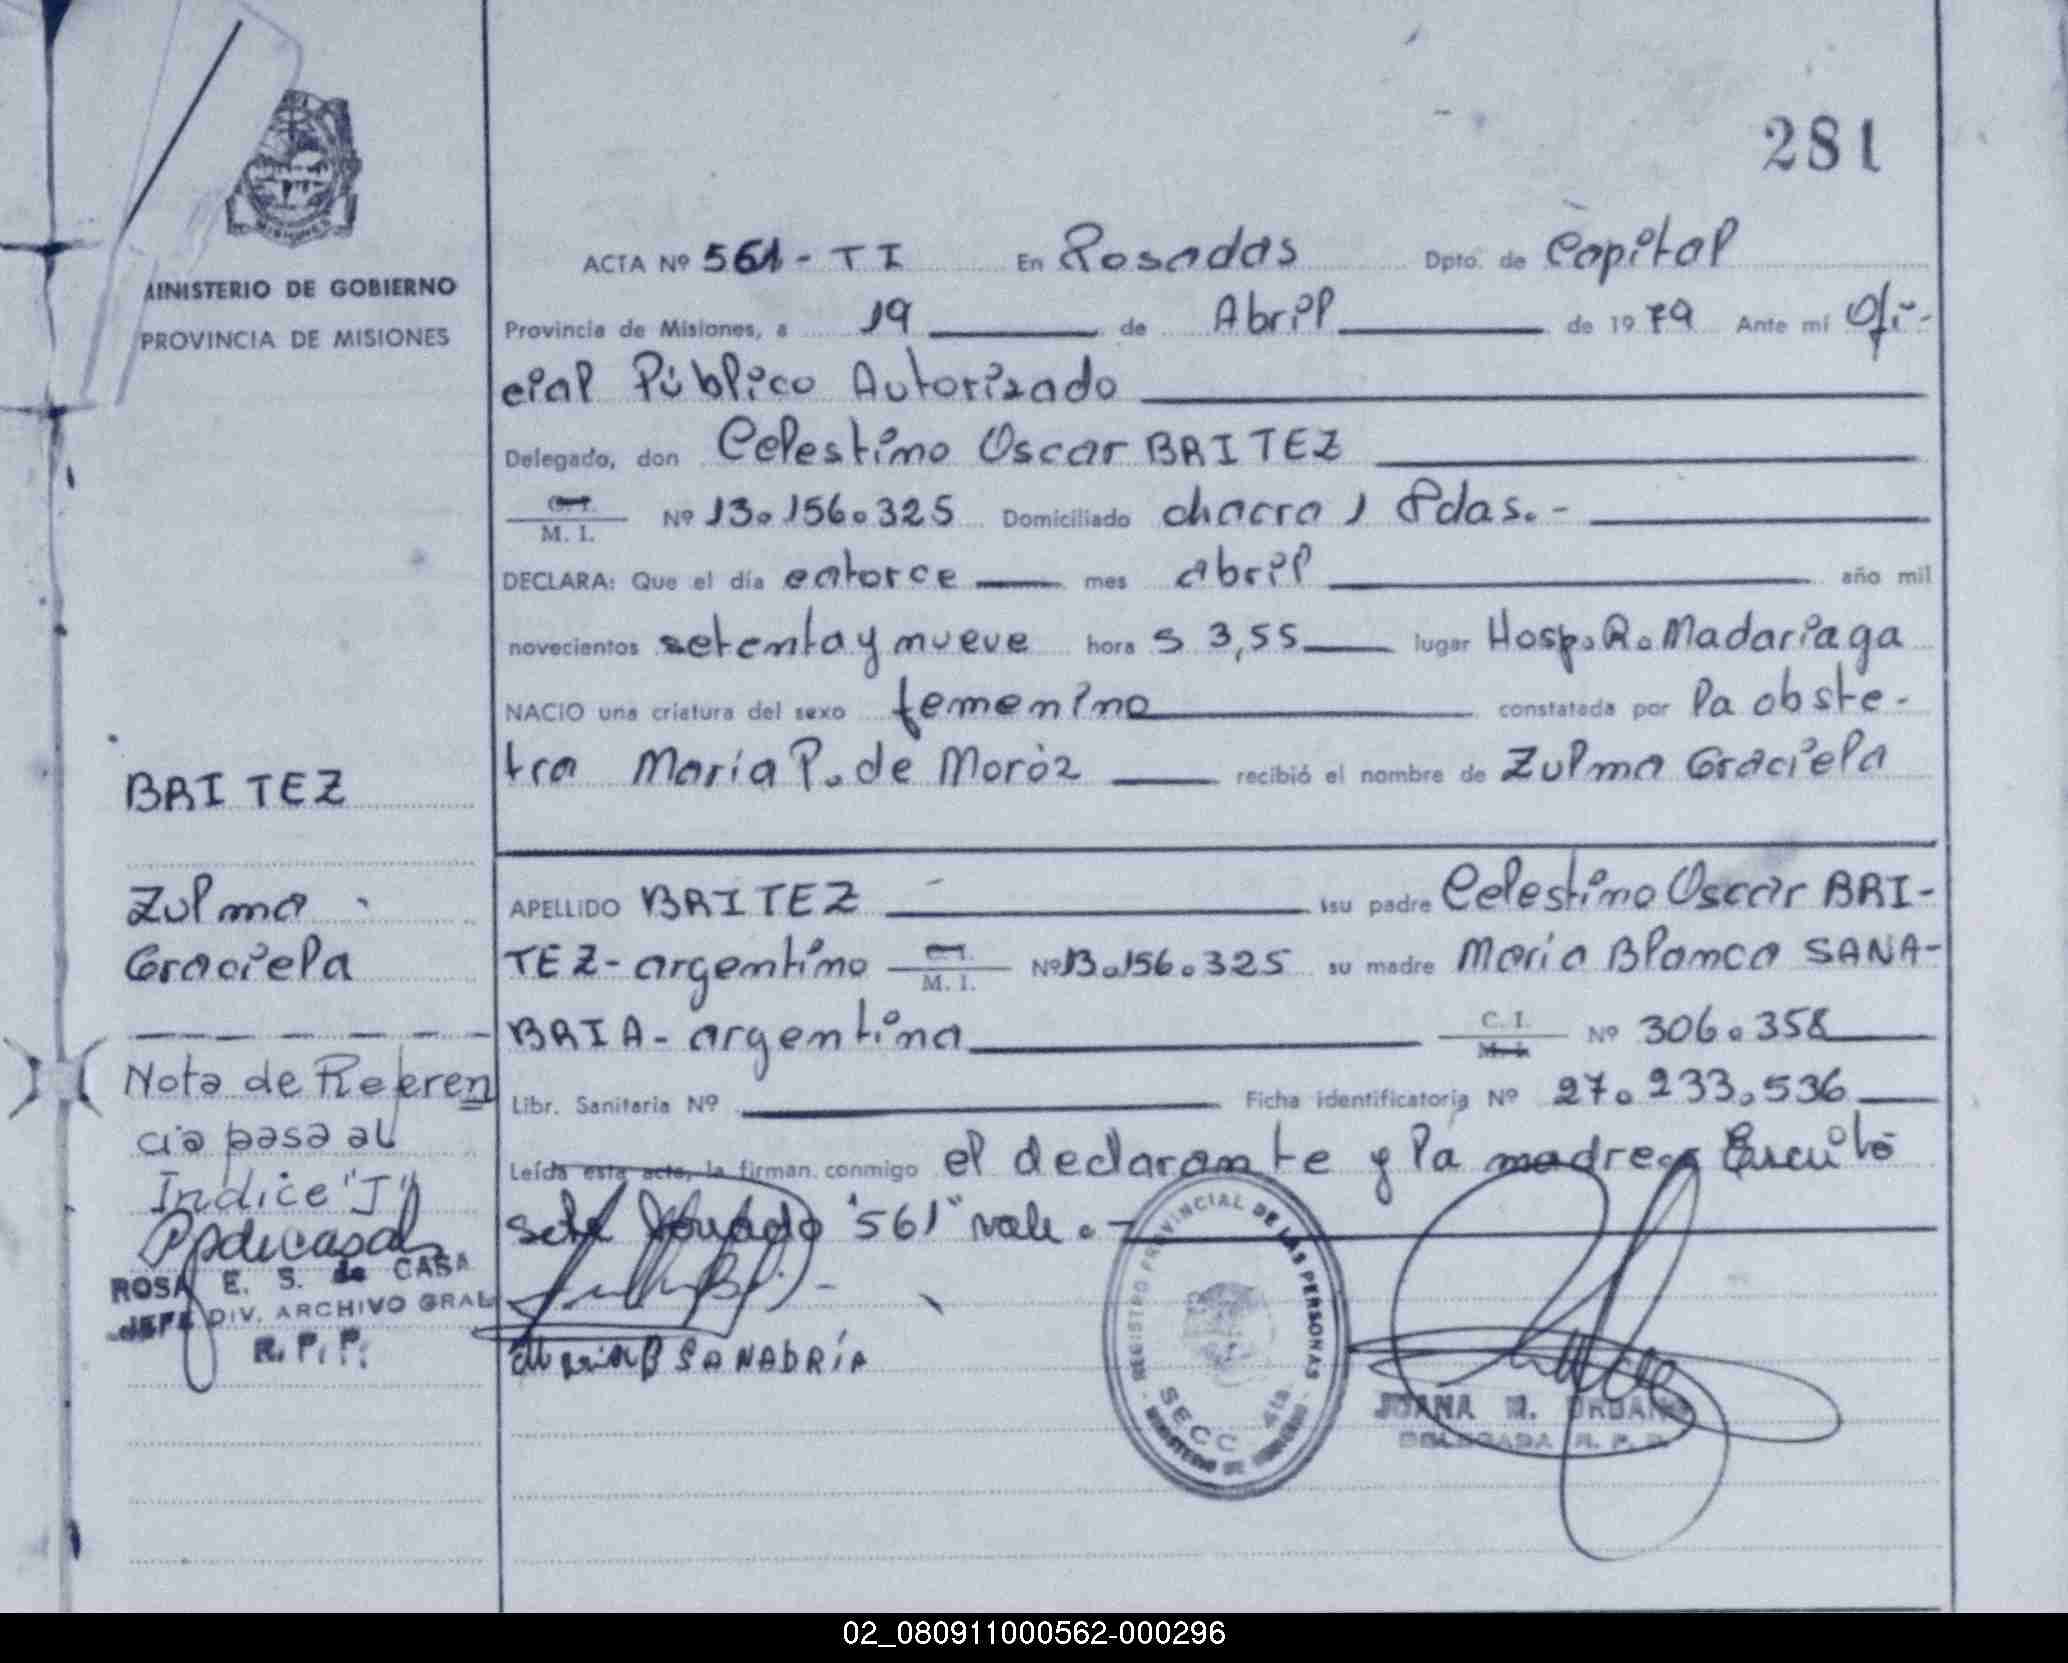 281
MISIONES
MINISTERIO DE GOBIERNO
PROVINCIA DE MISIONES
ACTA Nº 561 - TI En Posadas Dpto. de Capital
Provincia de Misiones, a 19 de Abril de 1979 Ante mí Ofi-
cial Público Autorizado
Delegado, don Celestino Oscar BRITEZ
C. I.
M. I. Nº 13.156.325 Domiciliado chacra 1 Pdas.-
DECLARA: Que el día catorce mes abril año mil
novecientos setenta y nueve hora s 3,55 lugar Hosp. R. Madariaga
NACIO una criatura del sexo femenino constatada por la obste-
tra María P. de Moróz recibió el nombre de Zulma Graciela
BRITEZ
Zulma
Graciela
APELLIDO BRITEZ su padre Celestino Oscar BRI-
TEZ - argentino M. I. Nº 13.156.325 su madre María Blanca SANA-
BRIA - argentina C. I. M. I. Nº 306.358
Libr. Sanitaria Nº Ficha identificatoria Nº 27.233.536
Leída esta acta, la firman conmigo el declarante y la madre.
"561" vale.-
Nota de Referen
cia pasa al
Indice "J"
ROSA E. S. de CASA
JEFE DIV. ARCHIVO GRAL
R. P. P.
María B SANABRIA
REGISTRO PROVINCIAL DE LAS PERSONAS
SECC 4ta
MINISTERIO DE GOBIERNO
JUANA M. URBANO
DELEGADA R. P. P.
02_080911000562-000296